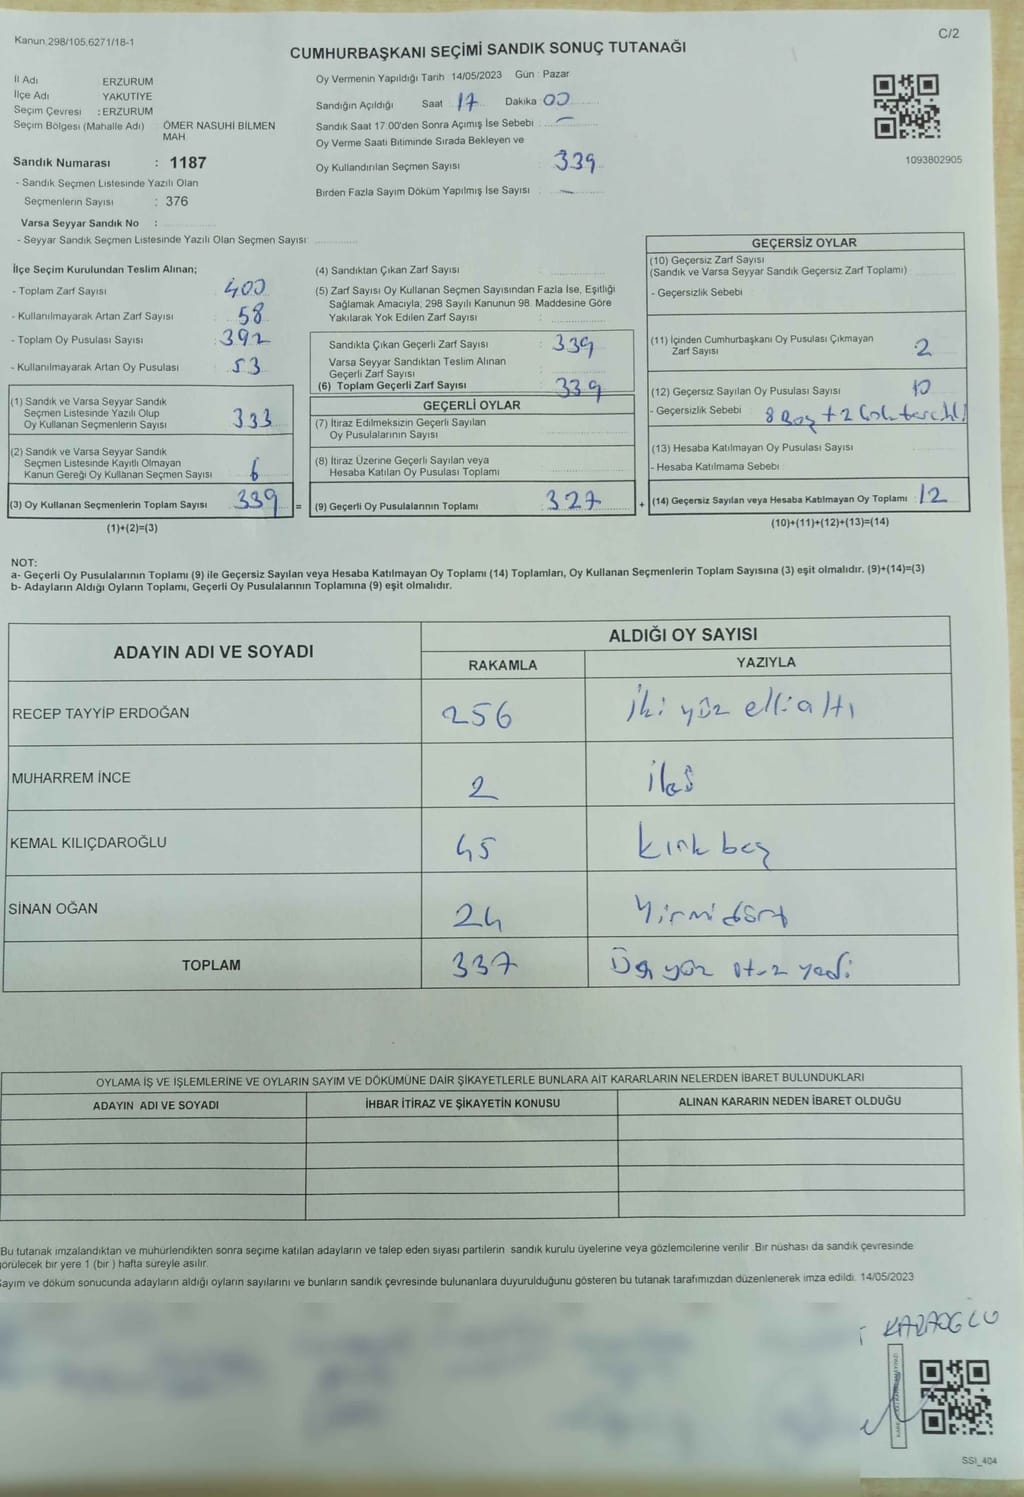 Kanun 298/105;6271/18-1
C/2
CUMHURBAŞKANI SEÇİMİ SANDIK SONUÇ TUTANAĞI
İl Adı ERZURUM
İlçe Adı YAKUTİYE
Seçim Çevresi : ERZURUM
Seçim Bölgesi (Mahalle Adı) ÖMER NASUHİ BİLMEN MAH
Sandık Numarası : 1187
- Sandık Seçmen Listesinde Yazılı Olan
Seçmenlerin Sayısı : 376
Varsa Seyyar Sandık No :
- Seyyar Sandık Seçmen Listesinde Yazılı Olan Seçmen Sayısı
Oy Vermenin Yapıldığı Tarih 14/05/2023 Gün : Pazar
Sandığın Açıldığı Saat 17 Dakika 00
Sandık Saat 17.00'den Sonra Açımış İse Sebebi : —
Oy Verme Saati Bitiminde Sırada Bekleyen ve
Oy Kullandırılan Seçmen Sayısı : 339
Birden Fazla Sayım Döküm Yapılmış İse Sayısı : —
1093802905
İlçe Seçim Kurulundan Teslim Alınan;
- Toplam Zarf Sayısı : 400
- Kullanılmayarak Artan Zarf Sayısı : 58
- Toplam Oy Pusulası Sayısı : 392
- Kullanılmayarak Artan Oy Pusulası : 53
(1) Sandık ve Varsa Seyyar Sandık
Seçmen Listesinde Yazılı Olup
Oy Kullanan Seçmenlerin Sayısı 333
(2) Sandık ve Varsa Seyyar Sandık
Seçmen Listesinde Kayıtlı Olmayan
Kanun Gereği Oy Kullanan Seçmen Sayısı 6
(3) Oy Kullanan Seçmenlerin Toplam Sayısı 339 =
(1)+(2)=(3)
(4) Sandıktan Çıkan Zarf Sayısı
(5) Zarf Sayısı Oy Kullanan Seçmen Sayısından Fazla İse, Eşitliği
Sağlamak Amacıyla, 298 Sayılı Kanunun 98. Maddesine Göre
Yakılarak Yok Edilen Zarf Sayısı :
Sandıkta Çıkan Geçerli Zarf Sayısı : 339
Varsa Seyyar Sandıktan Teslim Alınan
Geçerli Zarf Sayısı
(6) Toplam Geçerli Zarf Sayısı : 339
GEÇERLİ OYLAR
(7) İtiraz Edilmeksizin Geçerli Sayılan
Oy Pusulalarının Sayısı
(8) İtiraz Üzerine Geçerli Sayılan veya
Hesaba Katılan Oy Pusulası Toplamı
(9) Geçerli Oy Pusulalarının Toplamı 327 +
GEÇERSİZ OYLAR
(10) Geçersiz Zarf Sayısı
(Sandık ve Varsa Seyyar Sandık Geçersiz Zarf Toplamı)
- Geçersizlik Sebebi
(11) İçinden Cumhurbaşkanı Oy Pusulası Çıkmayan
Zarf Sayısı 2
(12) Geçersiz Sayılan Oy Pusulası Sayısı 10
- Geçersizlik Sebebi : 8 Boş + 2
(13) Hesaba Katılmayan Oy Pusulası Sayısı
- Hesaba Katılmama Sebebi
(14) Geçersiz Sayılan veya Hesaba Katılmayan Oy Toplamı : 12
(10)+(11)+(12)+(13)=(14)
NOT:
a- Geçerli Oy Pusulalarının Toplamı (9) ile Geçersiz Sayılan veya Hesaba Katılmayan Oy Toplamı (14) Toplamları, Oy Kullanan Seçmenlerin Toplam Sayısına (3) eşit olmalıdır. (9)+(14)=(3)
b- Adayların Aldığı Oyların Toplamı, Geçerli Oy Pusulalarının Toplamına (9) eşit olmalıdır.
ADAYIN ADI VE SOYADI ALDIĞI OY SAYISI
RAKAMLA YAZIYLA
RECEP TAYYİP ERDOĞAN 256 iki yüz elli altı
MUHARREM İNCE 2 iki
KEMAL KILIÇDAROĞLU 45 kırk beş
SİNAN OĞAN 24 Yirmi dört
TOPLAM 337 Üç yüz otuz yedi
OYLAMA İŞ VE İŞLEMLERİNE VE OYLARIN SAYIM VE DÖKÜMÜNE DAİR ŞİKAYETLERLE BUNLARA AİT KARARLARIN NELERDEN İBARET BULUNDUKLARI
ADAYIN ADI VE SOYADI İHBAR İTİRAZ VE ŞİKAYETİN KONUSU ALINAN KARARIN NEDEN İBARET OLDUĞU
Bu tutanak imzalandıktan ve mühürlendikten sonra seçime katılan adayların ve talep eden siyasi partilerin sandık kurulu üyelerine veya gözlemcilerine verilir. Bir nüshası da sandık çevresinde
görülecek bir yere 1 (bir ) hafta süreyle asılır.
Sayım ve döküm sonucunda adayların aldığı oyların sayılarını ve bunların sandık çevresinde bulunanlara duyurulduğunu gösteren bu tutanak tarafımızdan düzenlenerek imza edildi. 14/05/2023
KARAOGLU
SSI_404